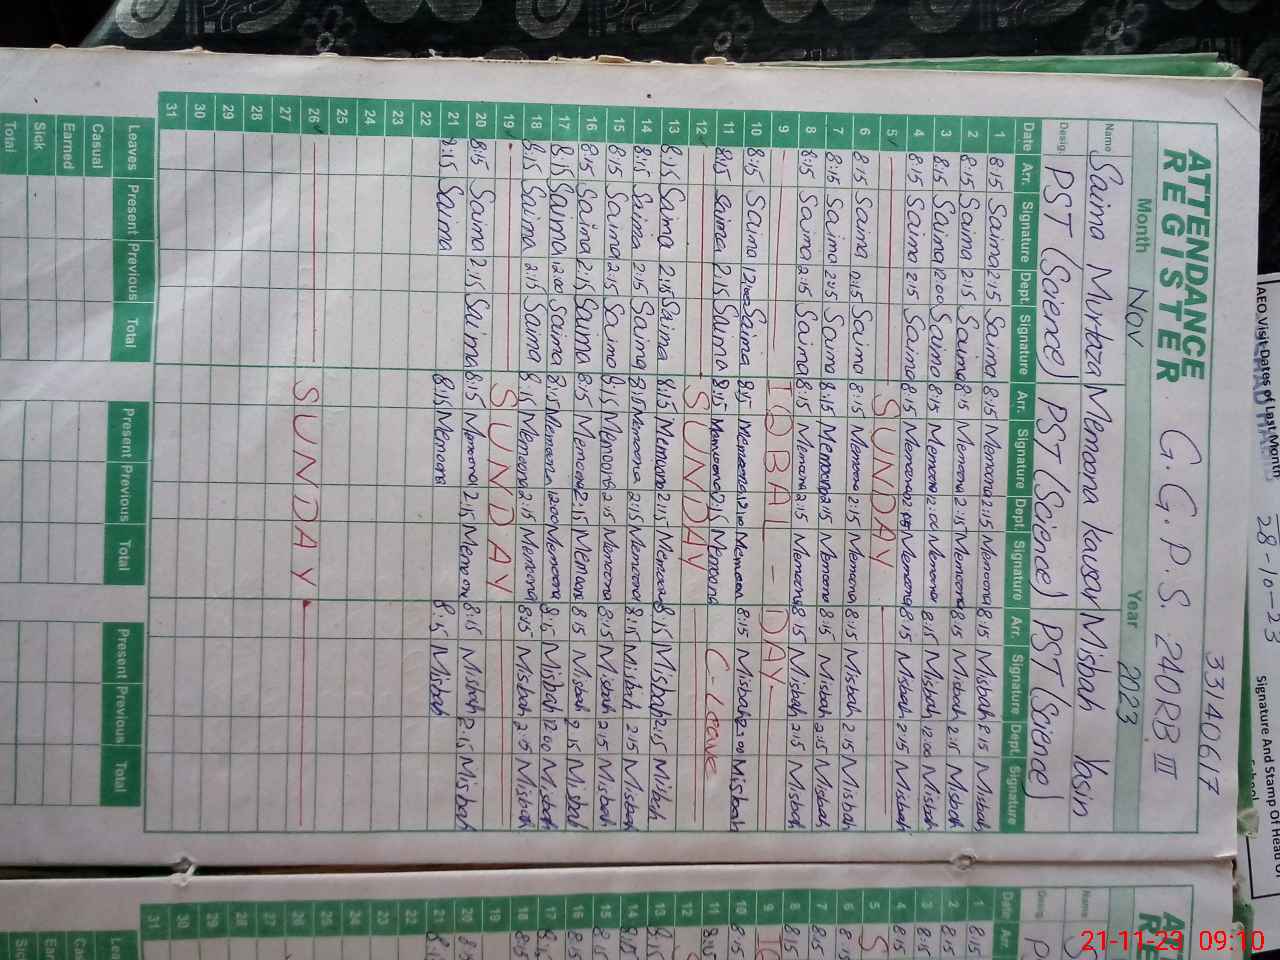 ATTENDANCE REGISTER
G.G.P.S. 240RB III
33140617
Month Nov Year 2023
Name Saima Murtaza Memoona kausar Misbah Yasin
Desig. PST (Science) PST (Science) PST (Science)
Date Arr. Signature Dept. Signature Arr. Signature Dept. Signature Arr. Signature Dept. Signature
1 8:15 Saima 2:15 Saima 8:15 Memoona 2:15 Memoona 8:15 Misbah 2:15 Misbah
2 8:15 Saima 2:15 Saima 8:15 Memoona 2:15 Memoona 8:15 Misbah 2:15 Misbah
3 8:15 Saima 12:00 Saima 8:15 Memoona 12:00 Memoona 8:15 Misbah 12:00 Misbah
4 8:15 Saima 2:15 Saima 8:15 Memoona 2:15 Memoona 8:15 Misbah 2:15 Misbah
5 SUNDAY
6 8:15 Saima 2:15 Saima 8:15 Memoona 2:15 Memoona 8:15 Misbah 2:15 Misbah
7 8:15 Saima 2:15 Saima 8:15 Memoona 2:15 Memoona 8:15 Misbah 2:15 Misbah
8 8:15 Saima 2:15 Saima 8:15 Memoona 2:15 Memoona 8:15 Misbah 2:15 Misbah
9 IQBAL - DAY
10 8:15 Saima Saima 8:15 Memoona Memoona 8:15 Misbah Misbah
11 8:15 Saima 2:15 Saima 8:15 Memoona 2:15 Memoona C-Leave
12 SUNDAY
13 8:15 Saima 2:15 Saima 8:15 Memoona 2:15 Memoona 8:15 Misbah 2:15 Misbah
14 8:15 Saima 2:15 Saima 8:15 Memoona 2:15 Memoona 8:15 Misbah 2:15 Misbah
15 8:15 Saima 2:15 Saima 8:15 Memoona 2:15 Memoona 8:15 Misbah 2:15 Misbah
16 8:15 Saima 2:15 Saima 8:15 Memoona 2:15 Memoona 8:15 Misbah 2:15 Misbah
17 8:15 Saima 12:00 Saima 8:15 Memoona 12:00 Memoona 8:15 Misbah 12:00 Misbah
18 8:15 Saima 2:15 Saima 8:15 Memoona 2:15 Memoona 8:15 Misbah 2:15 Misbah
19 SUNDAY
20 8:15 Saima 2:15 Saima 8:15 Memoona 2:15 Memoona 8:15 Misbah 2:15 Misbah
21 8:15 Saima 8:15 Memoona 8:15 Misbah
22
23
24
25
26 SUNDAY
27
28
29
30
31
Leaves Present Previous Total Present Previous Total Present Previous Total
Casual
Earned
Sick
Total
AEO Visit Dates of Last Month
28-10-23
Signature And Stamp of Head of
School
Name
Desig.
Date Arr.
1 8:15
2 8:15
3 8:15
4 8:15
5 S
6 8:15
7 8:15
8 8:15
9
10 8:15
11 8:15
12
13 8:15
14 8:15
15 8:15
16 8:15
17 8:15
18 8:15
19
20 8:15
21 8:15
22
23
24
25
26
27
28
29
30
31
21-11-23 09:10